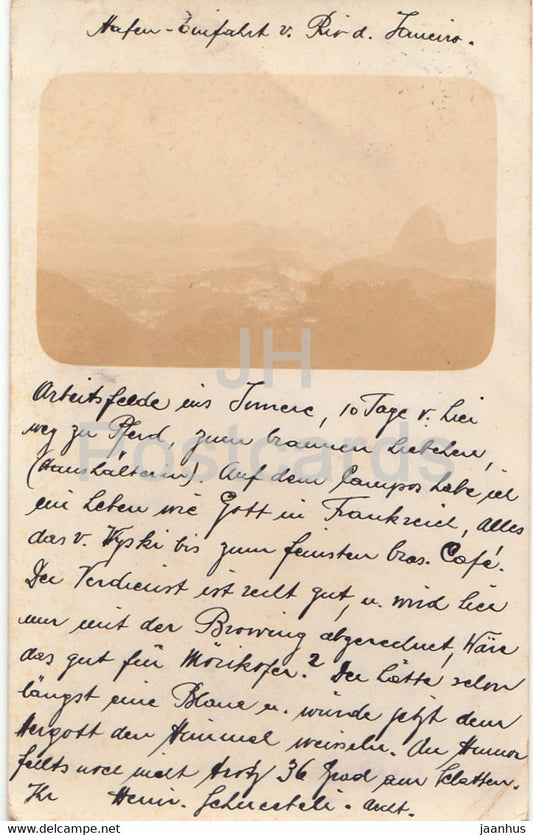 Hafen-Einfahrt v. Rio d. Janeiro.
JH
Postcards
Arbeitsfelde ins Innere, 10 Tage v. hier
weg zu Pferd, zum braunen Liebchen,
(Haushälterin) Auf dem Campos habe ich
ein Leben wie Gott in Frankreich, Alles
das v. Wyski bis zum feinsten bras. Café.
Der Verdienst ist recht gut, u. wird hier
nur mit der Browing abgerechnet, Wäre
das gut für Mörikofer? Der hätte schon
längst eine Blaue u. würde jetzt dem
Hergott den Himmel weisseln. An Humor
fehlts noch nicht trotz 36 Grad am Schatten.
Ihr Heinr.
© jaanhus-delcampe.net
jaanhus